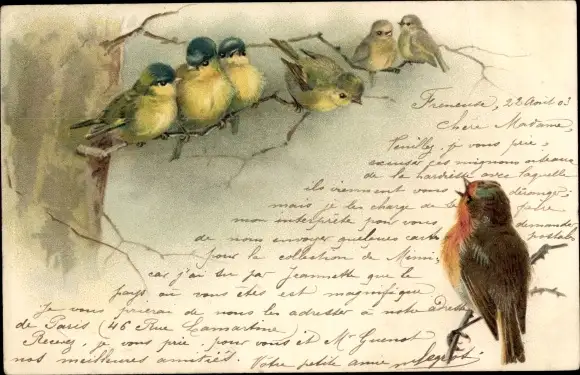 Freneuse, 22 Août 03
Chère Madame,
Veuillez, je vous prie,
excuser ces mignons oiseaux
de la hardiesse avec laquelle
ils viennent vous déranger;
mais je les charge de se faire
mon interprète pour vous demander
de nous envoyer quelques cartes postales
pour la collection de Mimi;
car j'ai su par Jeannette que le
pays où vous êtes est magnifique.
Je vous prierai de nous les adresser à notre adresse
de Paris (46 Rue Lamartine)
Recevez, je vous prie, pour vous et Mr Guenot
nos meilleures amitiés. Votre petite amie